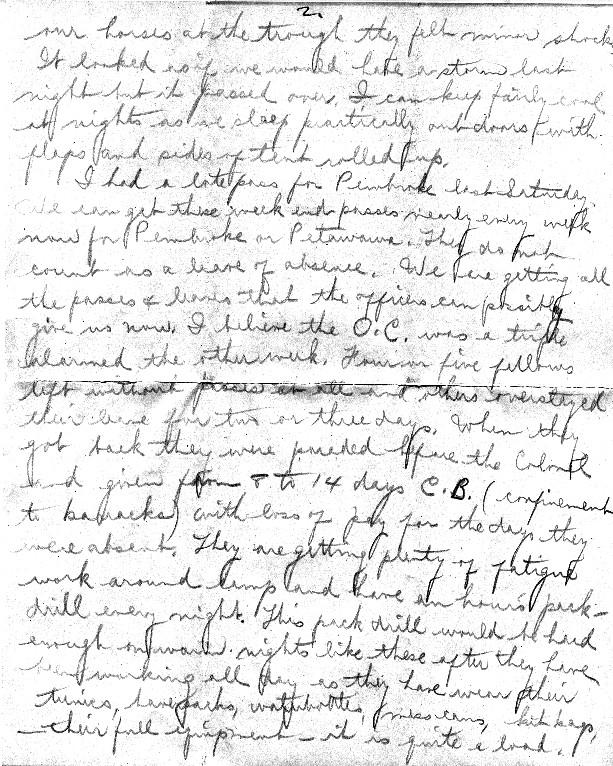 2.
our horses at the trough they felt minor shocks.
It looked as if we would have a storm last
night but it passed over. I can keep fairly cool
at nights as we sleep practically outdoors with
flaps and sides of tent rolled up.
I had a late pass for Pembroke last Saturday.
We can get these week end passes nearly every week
now for Pembroke or Petawawa. They do not
count as a leave of absence. We are getting all
the passes & leaves that the officers can possibly
give us now. I believe the O.C. was a trifle
alarmed the other week. Four or five fellows
left without passes at all and others overstayed
their leave for two or three days. When they
got back they were paraded before the Colonel
and given from 8 to 14 days C.B. (confinement
to barracks) with loss of pay for the days they
were absent. They are getting plenty of fatigue
work around camp and have an hour's pack-
drill every night. This pack drill would be hard
enough on warm nights like these after they have
been working all day as they have wear their
tunics, haversacks, waterbottles, mess cans, kit bags,
- their full equipment - it is quite a load.